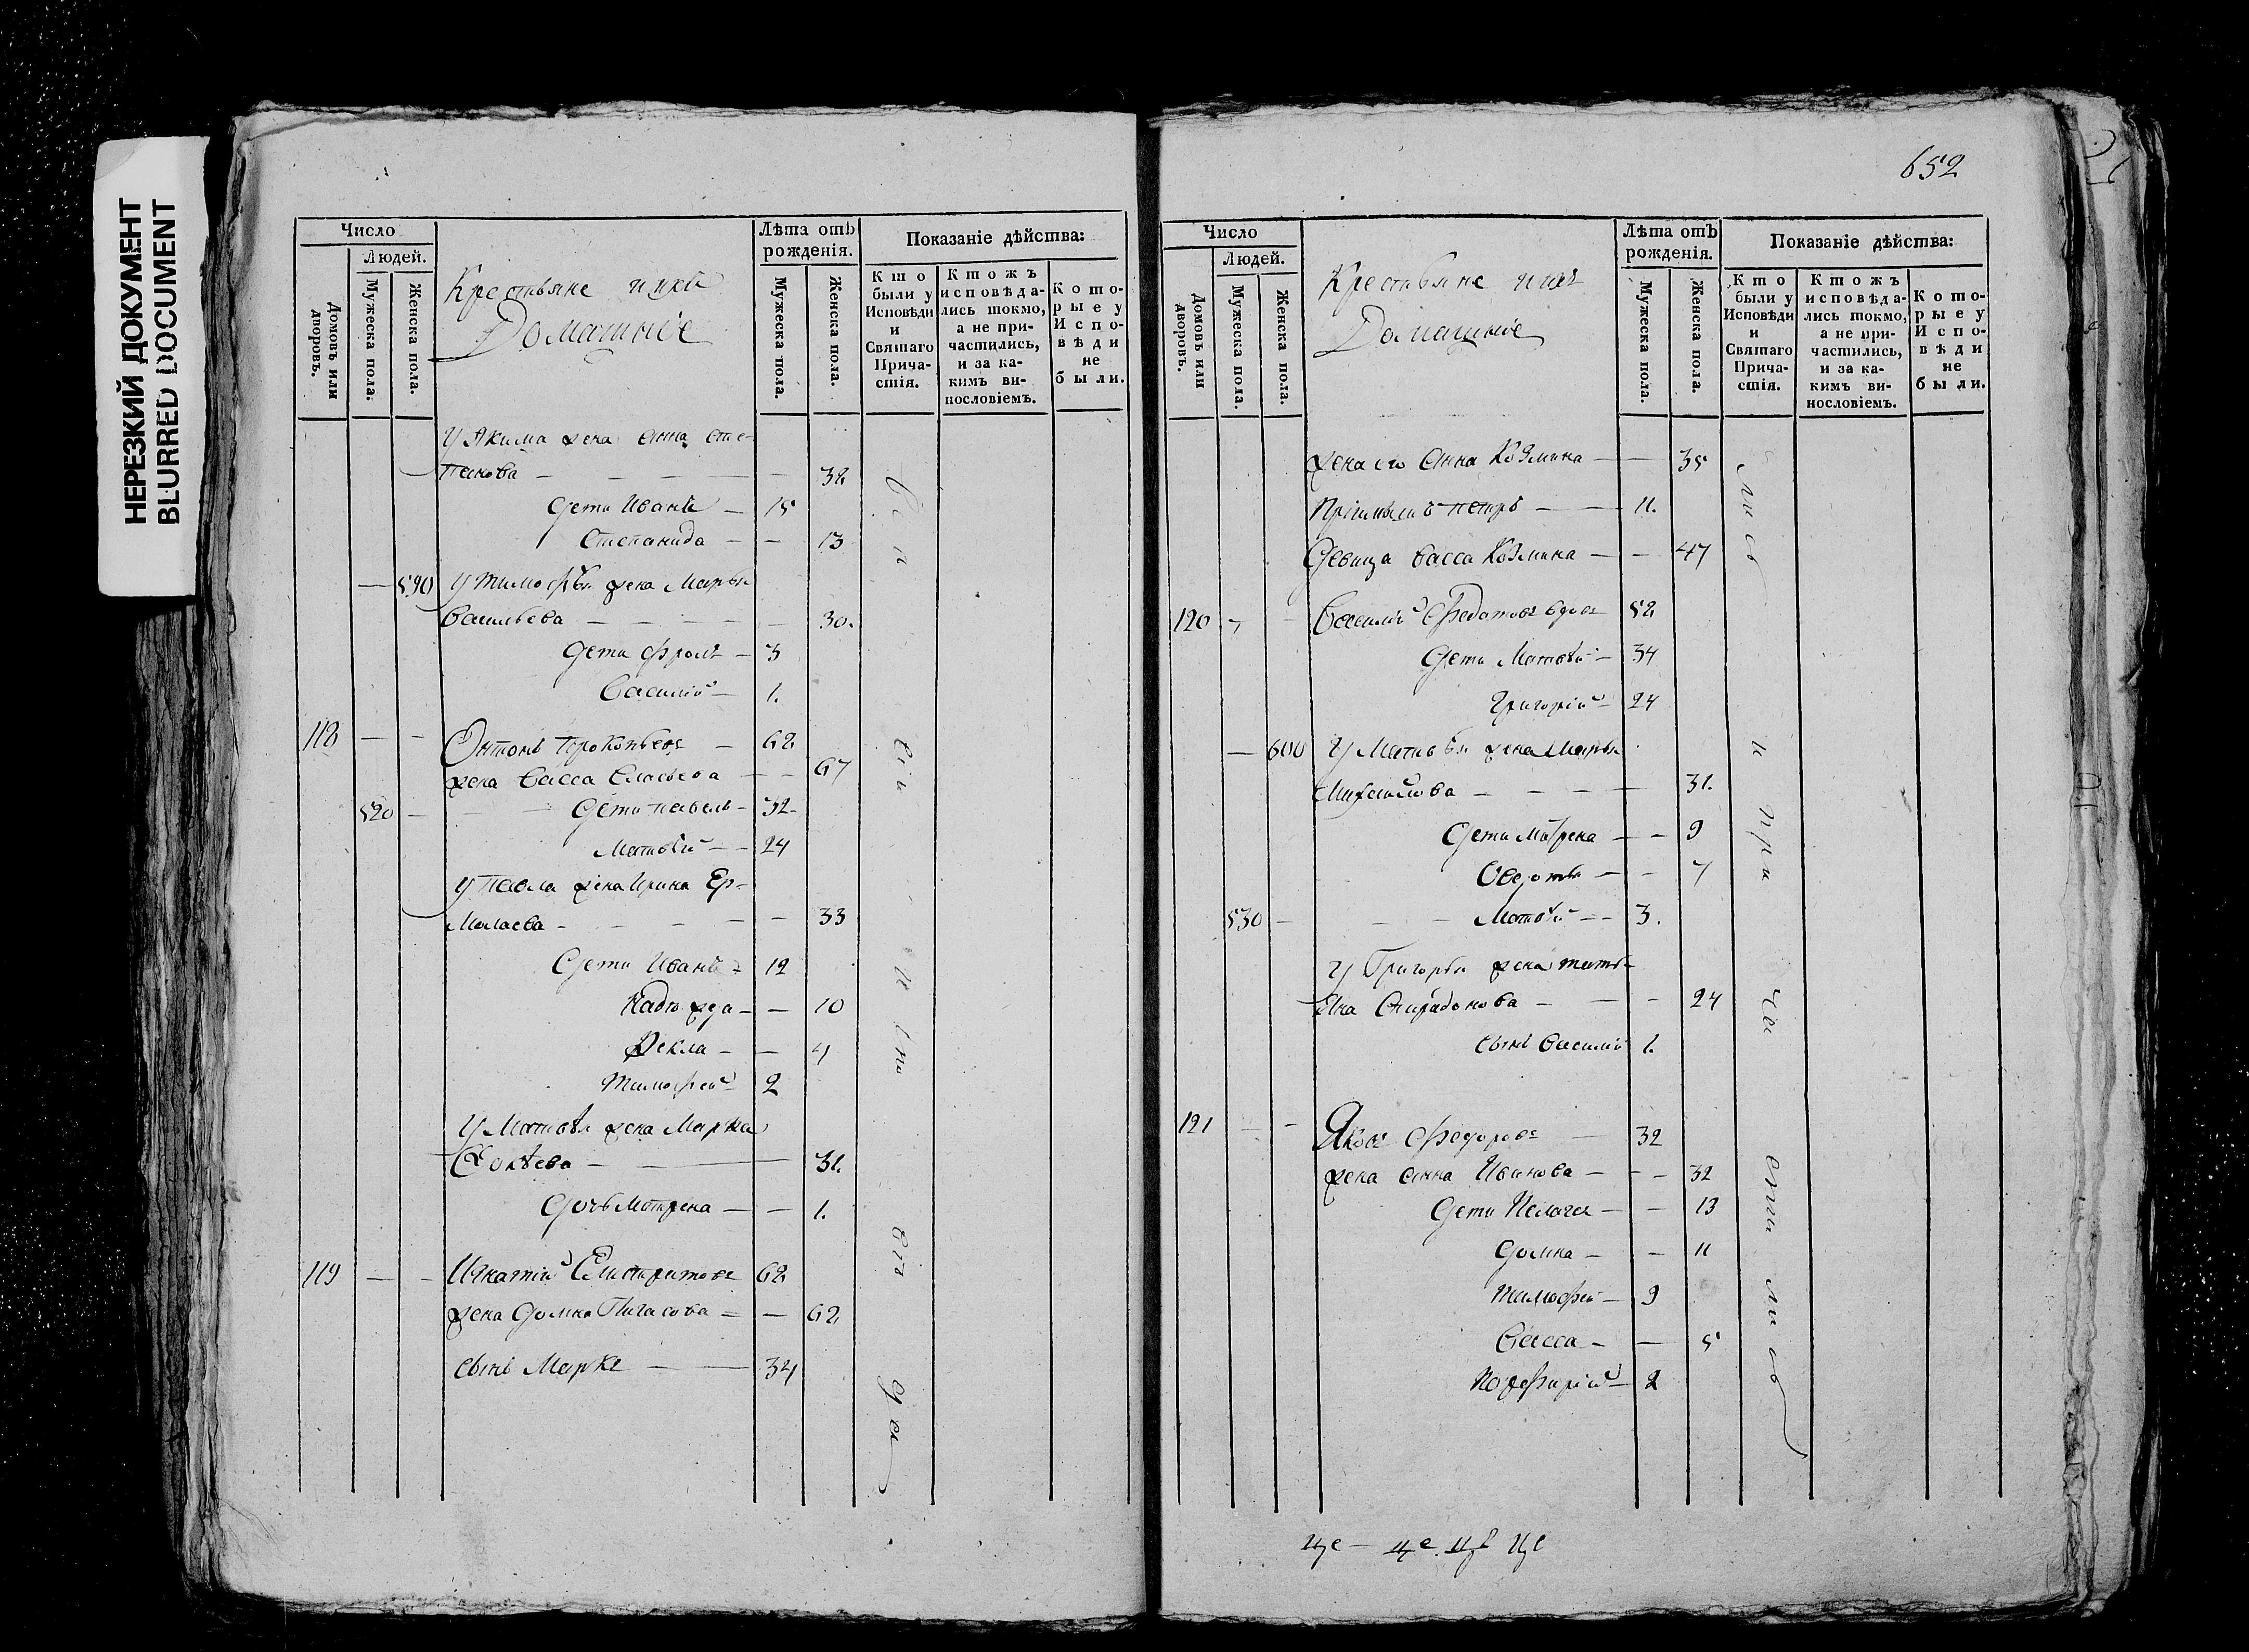 НЕРЕЗКИЙ ДОКУМЕНТ
BLURRED DOCUMENT
Число
Людей.
Домовъ или дворовъ.
Мужеска пола.
Женска пола.
Крестьяне и ихъ
Домашніе
Лѣта отъ рожденія.
Мужеска пола.
Женска пола.
Показаніе дѣйства:
Кто были у Исповѣди и Святаго Причастія.
Ктожъ исповѣдались токмо, а не причастились, и за какимъ винословіемъ.
Которые у Исповѣди не были.
У Акима жена Анна Сте-
панова — 32
Дети Иванъ — 15
Степанида — 13
— 590 У Тимофѣя жена Марья
Васильева — 30.
Дети Фролъ — 3
Василий — 1.
118 — — Антонъ Прокопьевъ — 62
жена Васса Власьева — 67
520 — Дети Павелъ — 32
Матвѣй — 24
У Павла жена Ирина Ер-
молаева — 33
Дети Иванъ — 12
Надежда — 10
Фекла — 4
Тимофей — 2
У Матвѣя жена Марка
31.
Дочь Матрена — 1.
119 — — Игнатій Елистратовъ 62
жена Домна Пигасова — 62
сынъ Марке — 34
652
Число
Людей.
Домовъ или дворовъ.
Мужеска пола.
Женска пола.
Крестьяне и ихъ
Домашніе
Лѣта отъ рожденія.
Мужеска пола.
Женска пола.
Показаніе дѣйства:
Кто были у Исповѣди и Святаго Причастія.
Ктожъ исповѣдались токмо, а не причастились, и за какимъ винословіемъ.
Которые у Исповѣди не были.
жена его Анна Козмина — 35
Пріимышъ Петръ — 11.
Девица Васса Козмина — 47
120 Василий Федотовъ вдовъ 52
Дети Матвѣй — 34
Григорій — 24
— 600 У Матвѣя жена Марья
Михайлова — 31.
Дети Матрена — 9
Федотья — 7
530 — Матвѣй — 3.
У Григорья жена Татья-
на Спиридонова — 24
сынъ Василий 1.
121 — — Яковъ Федоровъ — 32
жена Анна Иванова — 32
Дети Пелагея — 13
Домна — 11
Тимофей — 9
Васса — 5
Порфирій — 2